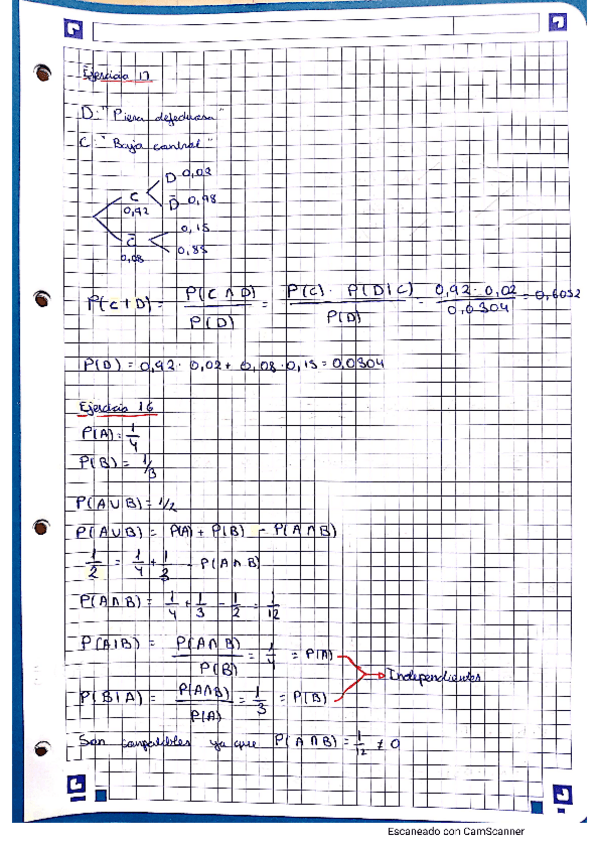 Ejercicio 17
D: "Pieza defectuosa"
C: "Bajo control"
D 0,02
C
0,92
D̄ 0,98
0,15
C̄
0,08
0,85
P(C|D) = P(C∩D) / P(D) = P(C) · P(D|C) / P(D) = 0,92 · 0,02 / 0,0304 = 0,6052
P(D) = 0,92 · 0,02 + 0,08 · 0,15 = 0,0304
Ejercicio 16
P(A) = 1/4
P(B) = 1/3
P(A∪B) = 1/2
P(A∪B) = P(A) + P(B) - P(A∩B)
1/2 = 1/4 + 1/3 - P(A∩B)
P(A∩B) = 1/4 + 1/3 - 1/2 = 1/12
P(A|B) = P(A∩B) / P(B) = 1/4 = P(A)
Independientes
P(B|A) = P(A∩B) / P(A) = 1/3 = P(B)
Son compatibles ya que P(A∩B) = 1/12 ≠ 0
Escaneado con CamScanner